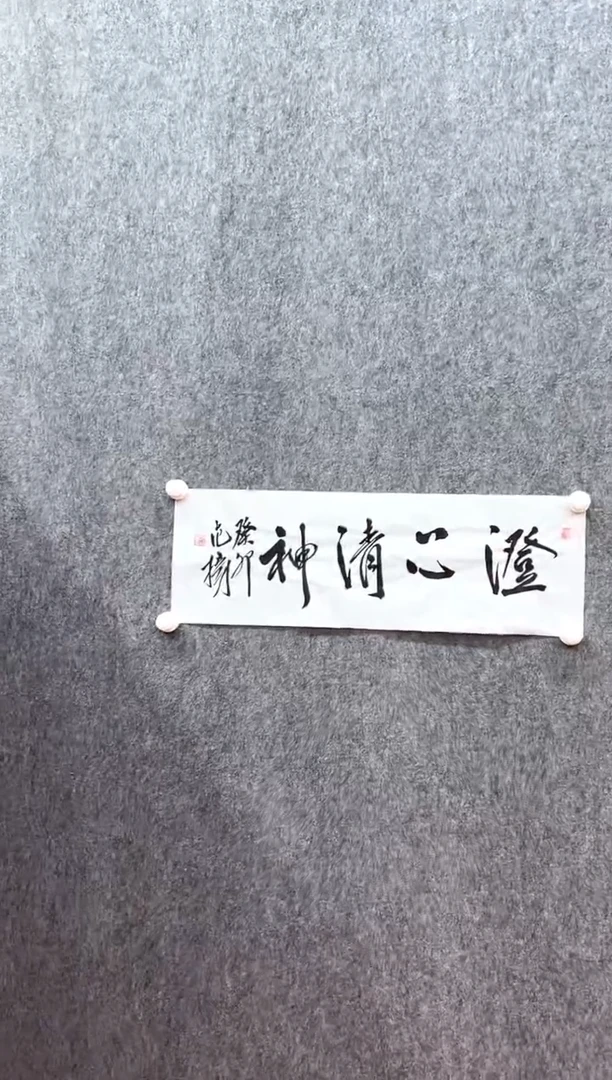 澄心清神
癸卯